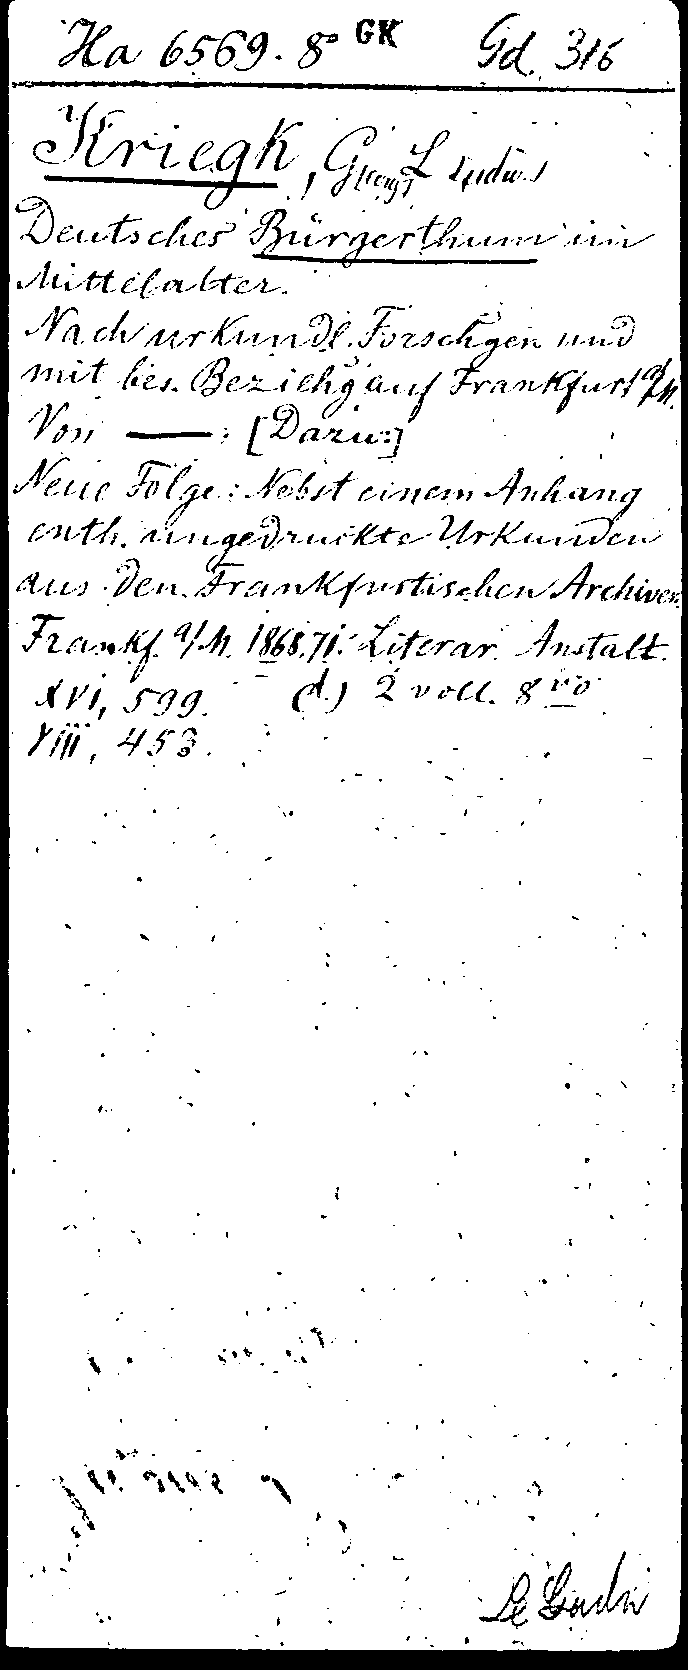 Ha 6569. 8° GK Gd. 316
Kriegk, Georg Ludw.
Deutsches Bürgerthum im
Mittelalter.
Nach urkundl. Forschgen und
mit bes. Beziehg auf Frankfurt a/M.
Von —: [Dazu:]
Neue Folge: Nebst einem Anhang
enth. ungedruckte Urkunden
aus den Frankfurtischen Archiven.
Frankf. a/M. 1868.71. Literar. Anstalt.
XVI, 599. (d.) 2 voll. 8vo
VIII, 453.